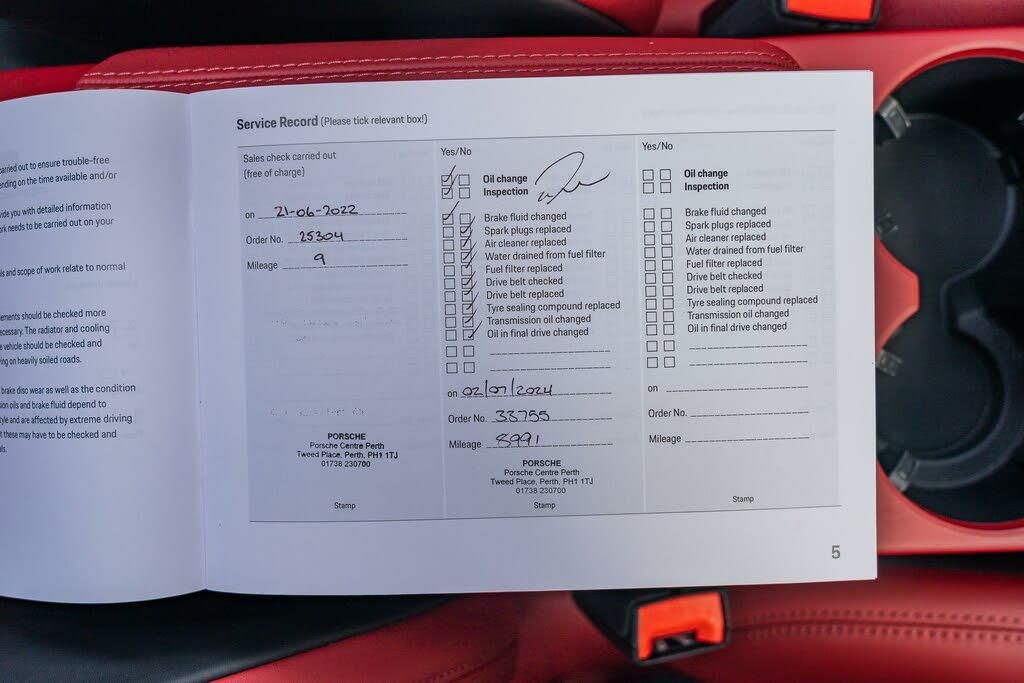 arried out to ensure trouble-free
ending on the time available and/or
vide you with detailed information
rk needs to be carried out on your
is and scope of work relate to normal
ements should be checked more
ecessary. The radiator and cooling
e vehicle should be checked and
ing on heavily soiled roads.
brake disc wear as well as the condition
sion oils and brake fluid depend to
tyle and are affected by extreme driving
t these may have to be checked and
als.
Service Record (Please tick relevant box!)
Sales check carried out
(free of charge)
on 21-06-2022
Order No. 25304
Mileage 9
PORSCHE
Porsche Centre Perth
Tweed Place, Perth, PH1 1TJ
01738 230700
Stamp
Yes/No
Oil change
Inspection
Brake fluid changed
Spark plugs replaced
Air cleaner replaced
Water drained from fuel filter
Fuel filter replaced
Drive belt checked
Drive belt replaced
Tyre sealing compound replaced
Transmission oil changed
Oil in final drive changed
on 02/07/2024
Order No. 33755
Mileage 8991
PORSCHE
Porsche Centre Perth
Tweed Place, Perth, PH1 1TJ
01738 230700
Stamp
Yes/No
Oil change
Inspection
Brake fluid changed
Spark plugs replaced
Air cleaner replaced
Water drained from fuel filter
Fuel filter replaced
Drive belt checked
Drive belt replaced
Tyre sealing compound replaced
Transmission oil changed
Oil in final drive changed
on
Order No.
Mileage
Stamp
5